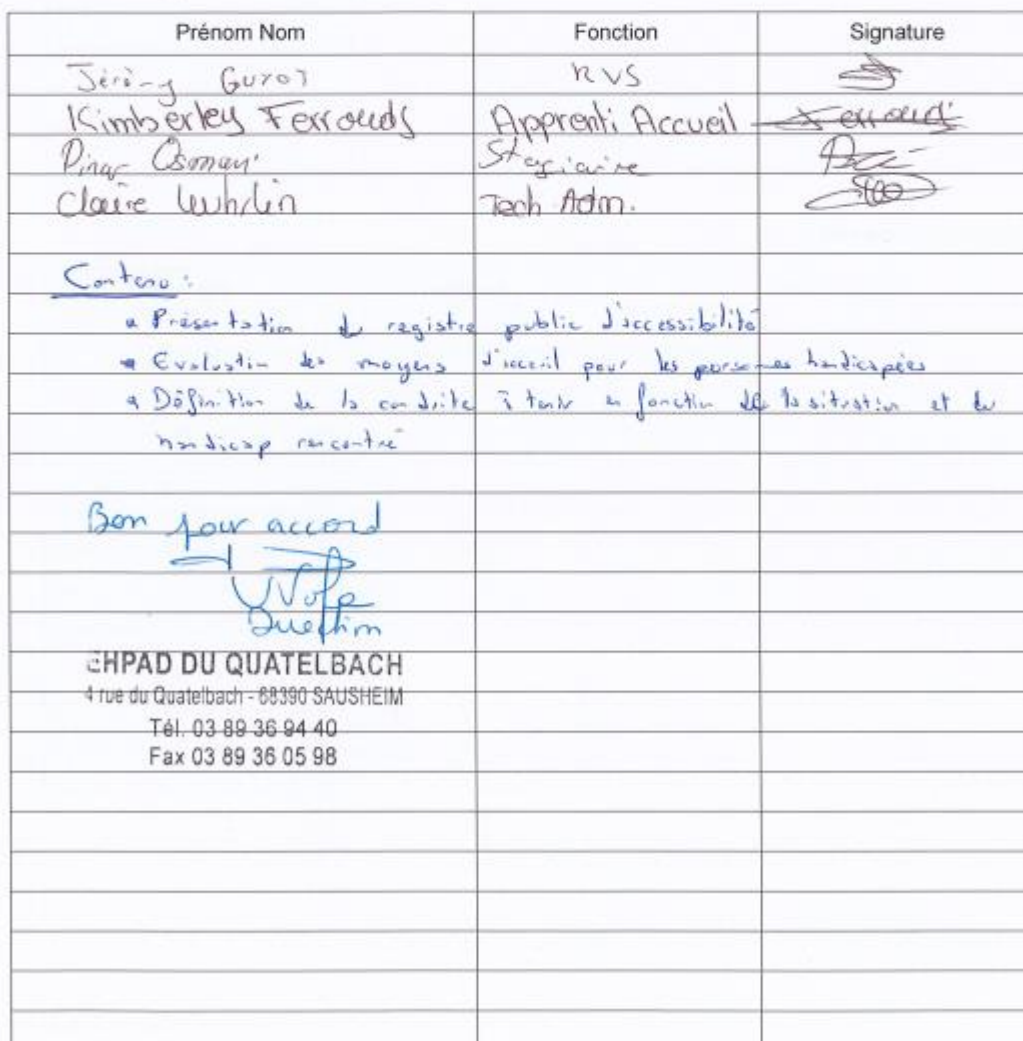 Prénom Nom Fonction Signature
Jérémy Guyot RVS
Kimberley Ferroudj Apprenti Accueil Ferroudj
Pinar Osmani Stagiaire
Claire Wuhrlin Tech Adm.
Contenu :
Présentation du registre public d'accessibilité
Evaluation des moyens d'accueil pour les personnes handicapées
Définition de la conduite à tenir en fonction de la situation et du
handicap rencontré
Bon pour accord
Direction
EHPAD DU QUATELBACH
4 rue du Quatelbach - 68390 SAUSHEIM
Tél. 03 89 36 94 40
Fax 03 89 36 05 98